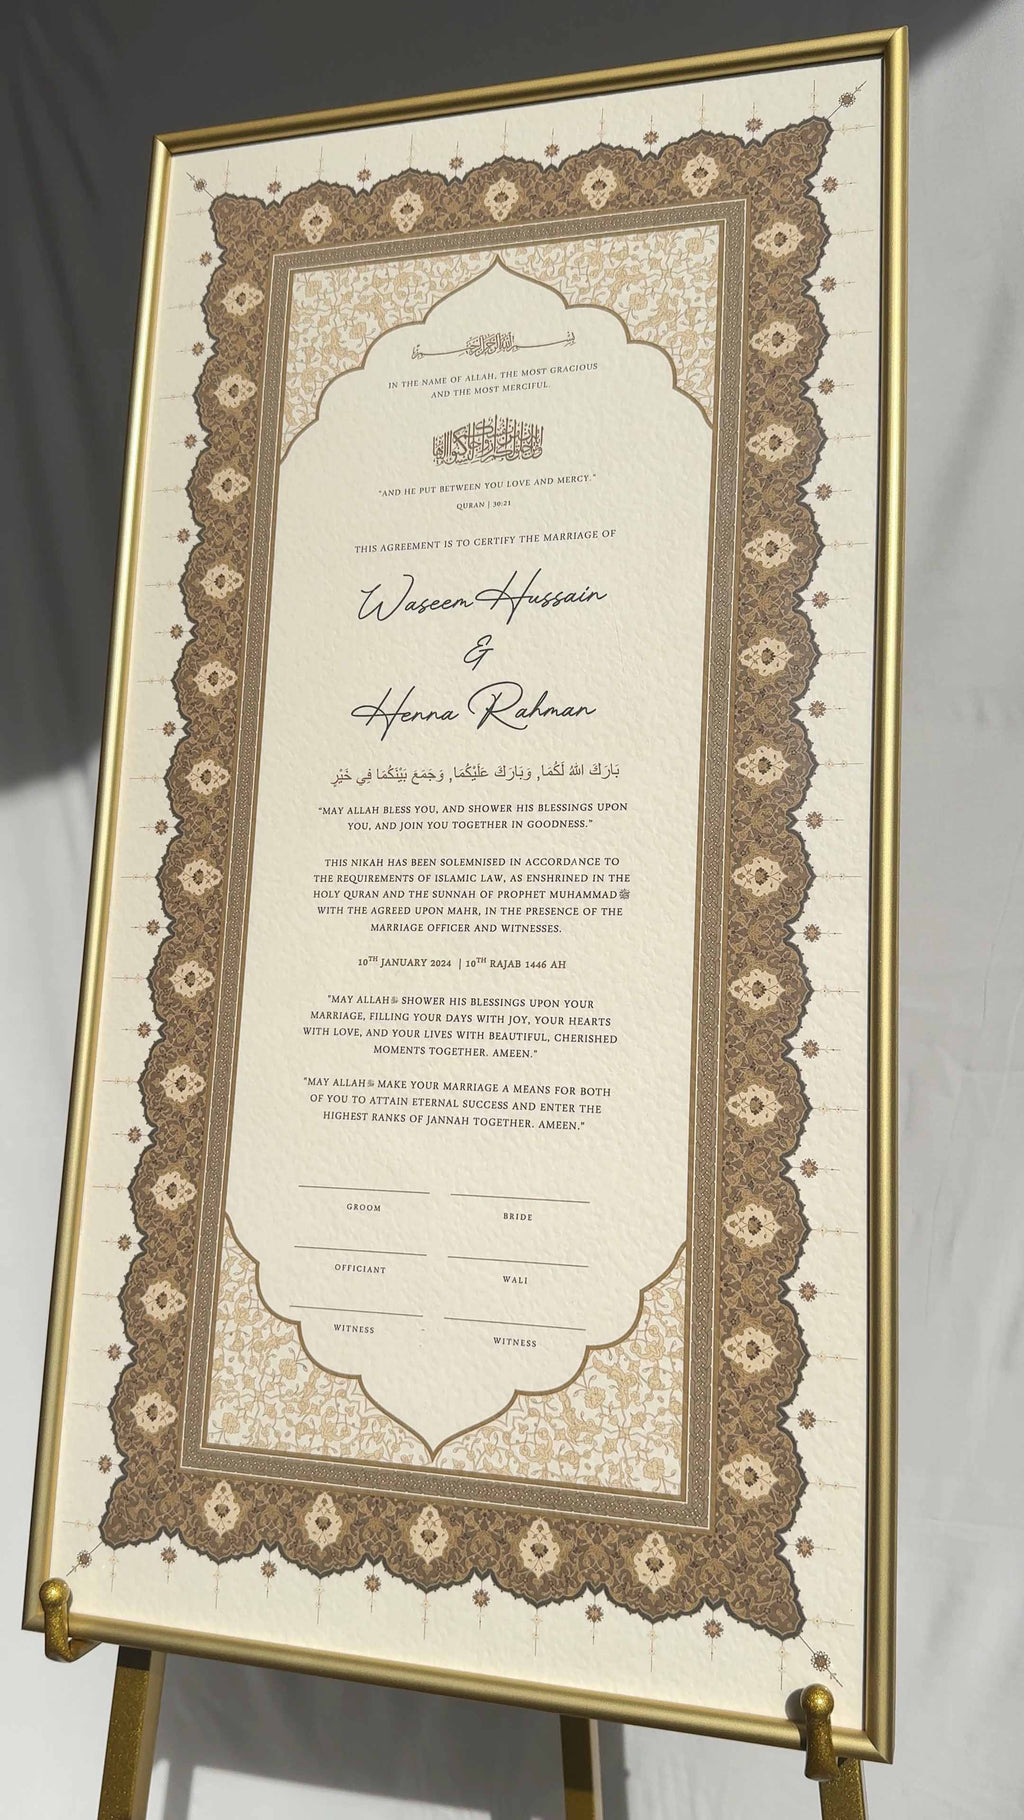 بِسْمِ اللهِ الرَّحْمٰنِ الرَّحِيْمِ
IN THE NAME OF ALLAH, THE MOST GRACIOUS
AND THE MOST MERCIFUL.
"AND HE PUT BETWEEN YOU LOVE AND MERCY."
QURAN | 30:21
THIS AGREEMENT IS TO CERTIFY THE MARRIAGE OF
Waseem Hussain
&
Henna Rahman
بَارَكَ اللهُ لَكُمَا, وَبَارَكَ عَلَيْكُمَا, وَجَمَعَ بَيْنَكُمَا فِي خَيْرٍ
"MAY ALLAH BLESS YOU, AND SHOWER HIS BLESSINGS UPON
YOU, AND JOIN YOU TOGETHER IN GOODNESS."
THIS NIKAH HAS BEEN SOLEMNISED IN ACCORDANCE TO
THE REQUIREMENTS OF ISLAMIC LAW, AS ENSHRINED IN THE
HOLY QURAN AND THE SUNNAH OF PROPHET MUHAMMAD ﷺ
WITH THE AGREED UPON MAHR, IN THE PRESENCE OF THE
MARRIAGE OFFICER AND WITNESSES.
10TH JANUARY 2024 | 10TH RAJAB 1446 AH
"MAY ALLAH SHOWER HIS BLESSINGS UPON YOUR
MARRIAGE, FILLING YOUR DAYS WITH JOY, YOUR HEARTS
WITH LOVE, AND YOUR LIVES WITH BEAUTIFUL, CHERISHED
MOMENTS TOGETHER. AMEEN."
"MAY ALLAH MAKE YOUR MARRIAGE A MEANS FOR BOTH
OF YOU TO ATTAIN ETERNAL SUCCESS AND ENTER THE
HIGHEST RANKS OF JANNAH TOGETHER. AMEEN."
GROOM
BRIDE
OFFICIANT
WALI
WITNESS
WITNESS